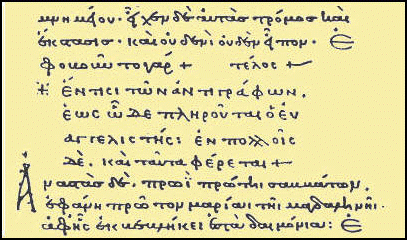 μνημείου· εἶχεν δὲ αὐτὰς τρόμος καὶ
ἔκστασις· καὶ οὐδενὶ οὐδὲν εἶπον· ἐ
φοβοῦντο γάρ + τέλος +
※ ἔν τισι τῶν ἀντιγράφων,
ἕως ὧδε πληροῦται ὁ εὐ
αγγελιστής: ἐν πολλοῖς
δὲ, καὶ ταῦτα φέρεται +
Ἀναστὰς δὲ, πρωῒ πρώτηι σαββάτων,
ἐφάνη πρῶτον μαρίαι τῆι μαγδαληνῆι·
ἀφ' ἧς ἐκβεβλήκει ἑπτὰ δαιμόνια: ἐ